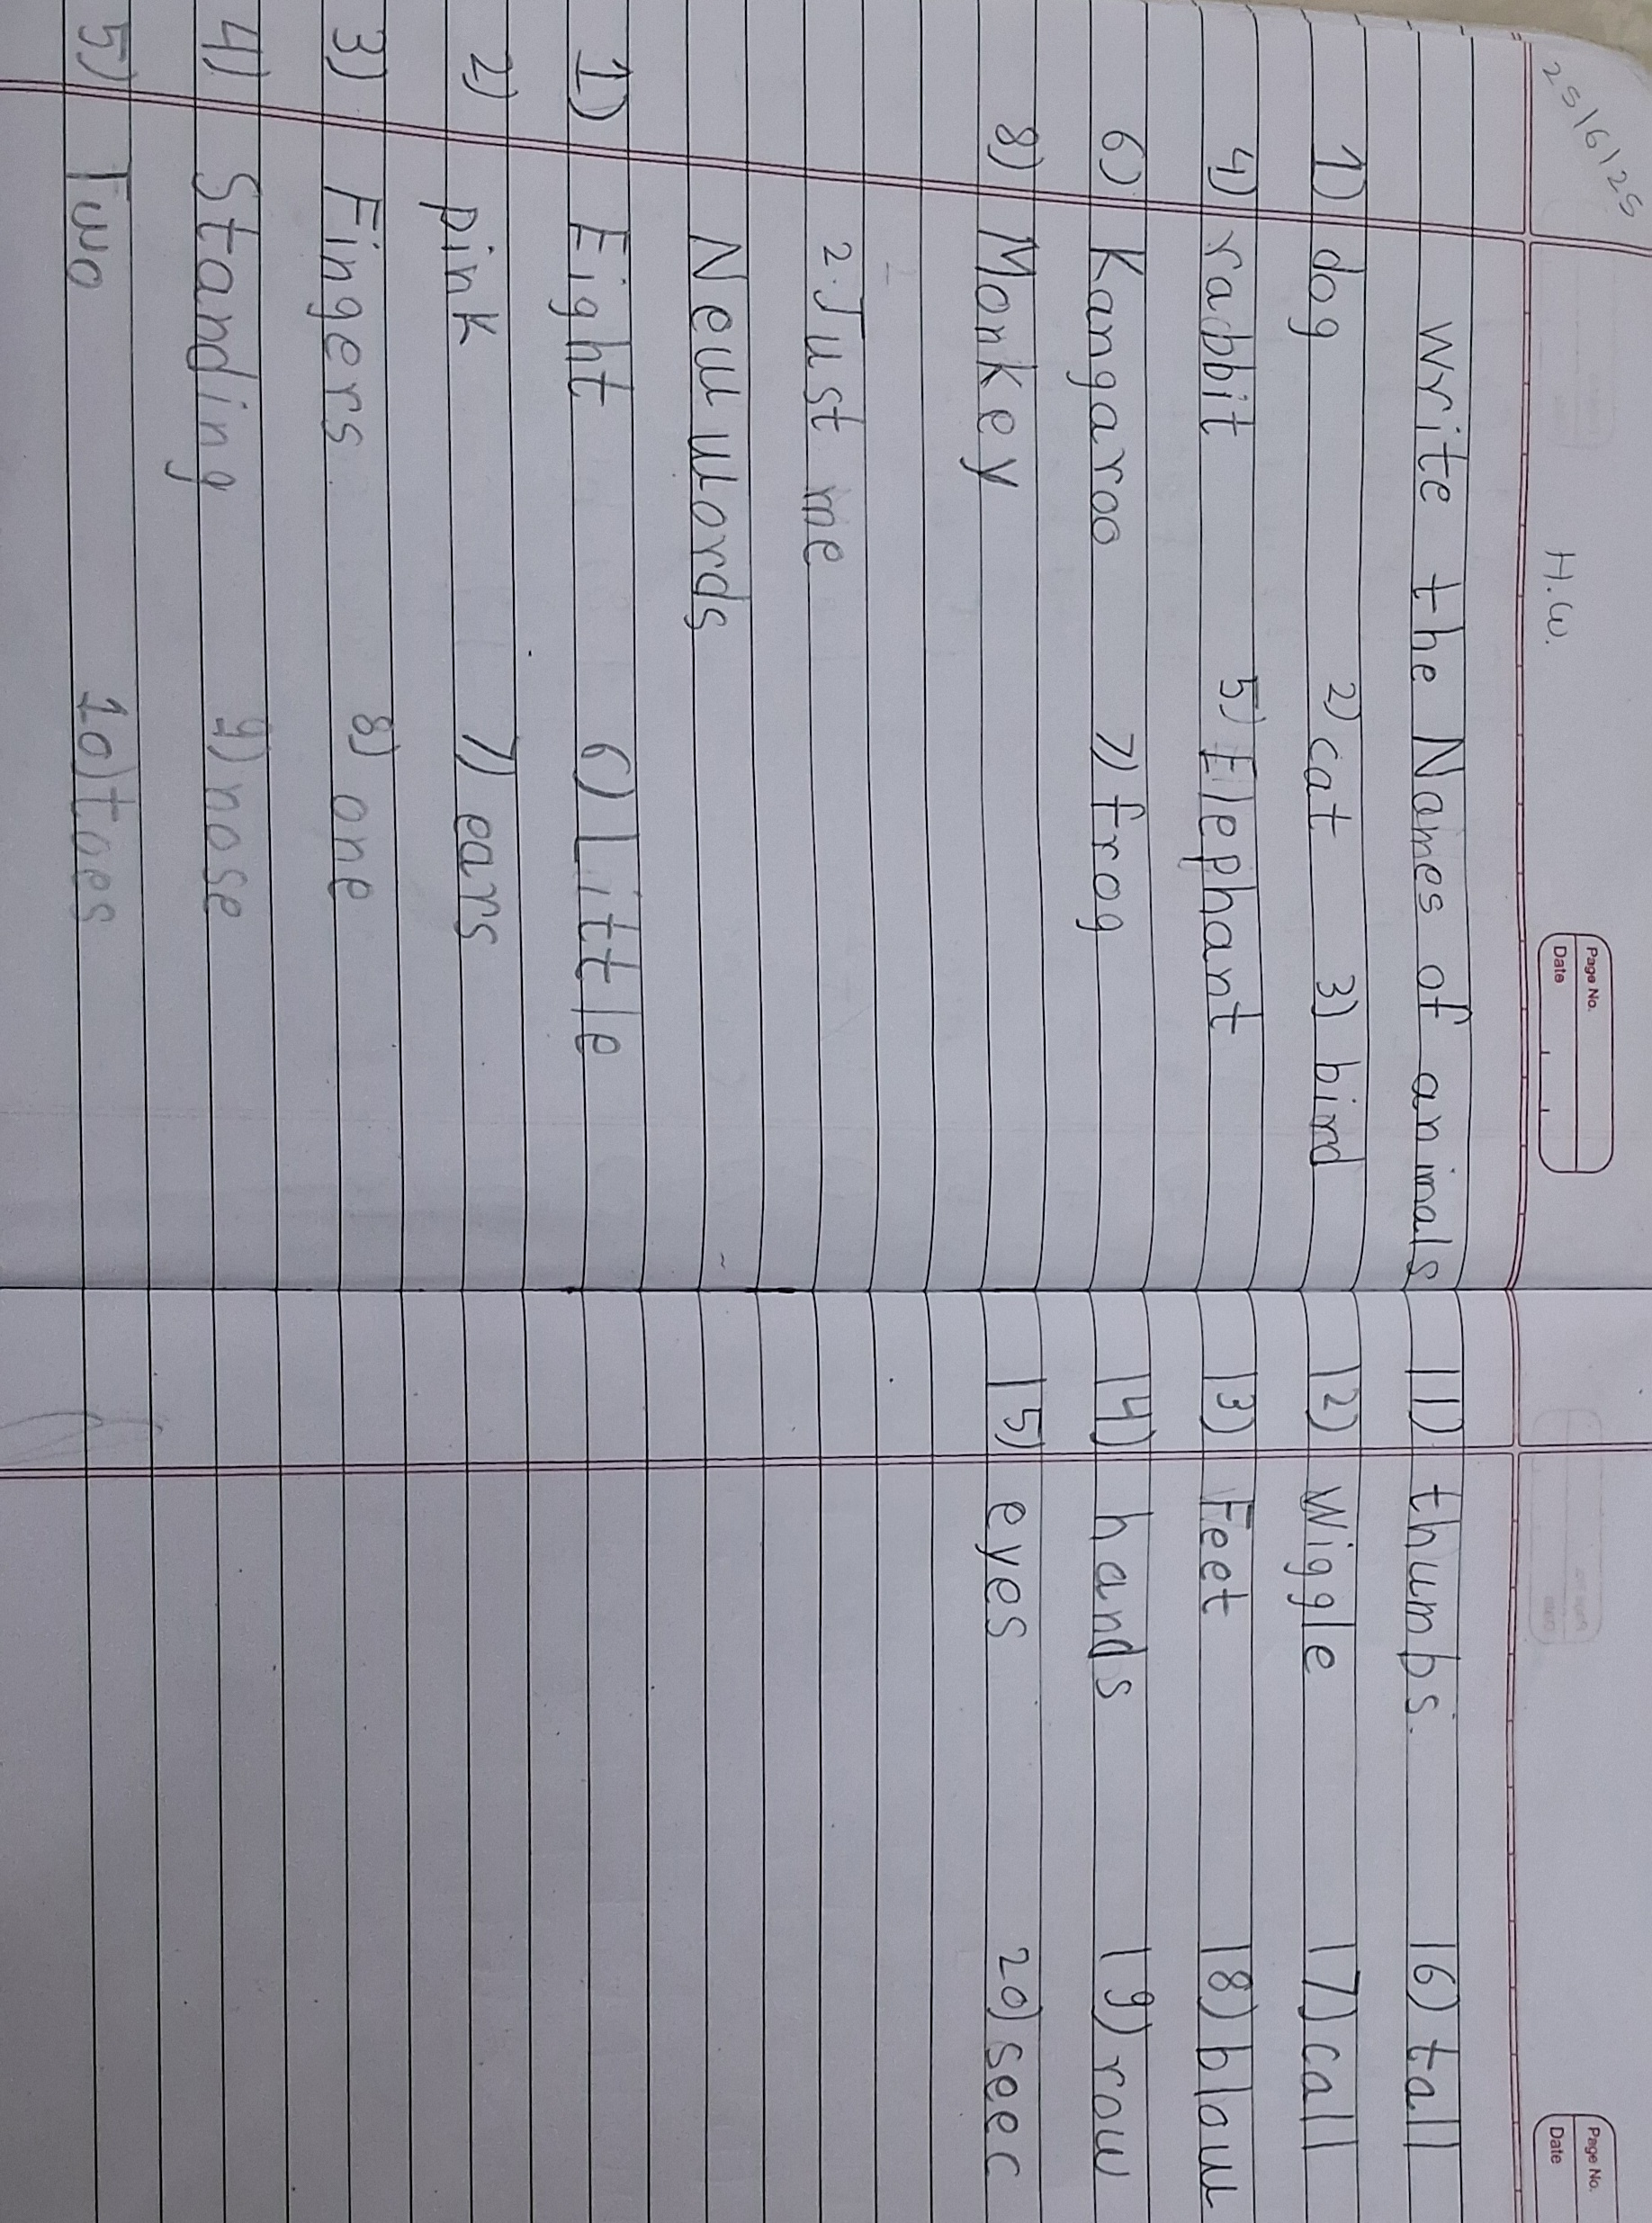 25/6/25
H.W.
Page No.
Date
Write the Names of animals
1) dog 2) cat 3) bird
4) rabbit 5) Elephant
6) Kangaroo 7) frog
8) Monkey
2. Just me
New words
1) Eight 6) Little
2) pink 7) ears
3) Fingers 8) one
4) Standing 9) nose
5) Two 10) toes
Page No.
Date
11) thumbs. 16) tall
12) Wiggle 17) call
13) Feet 18) blow
14) hands 19) row
15) eyes 20) seec